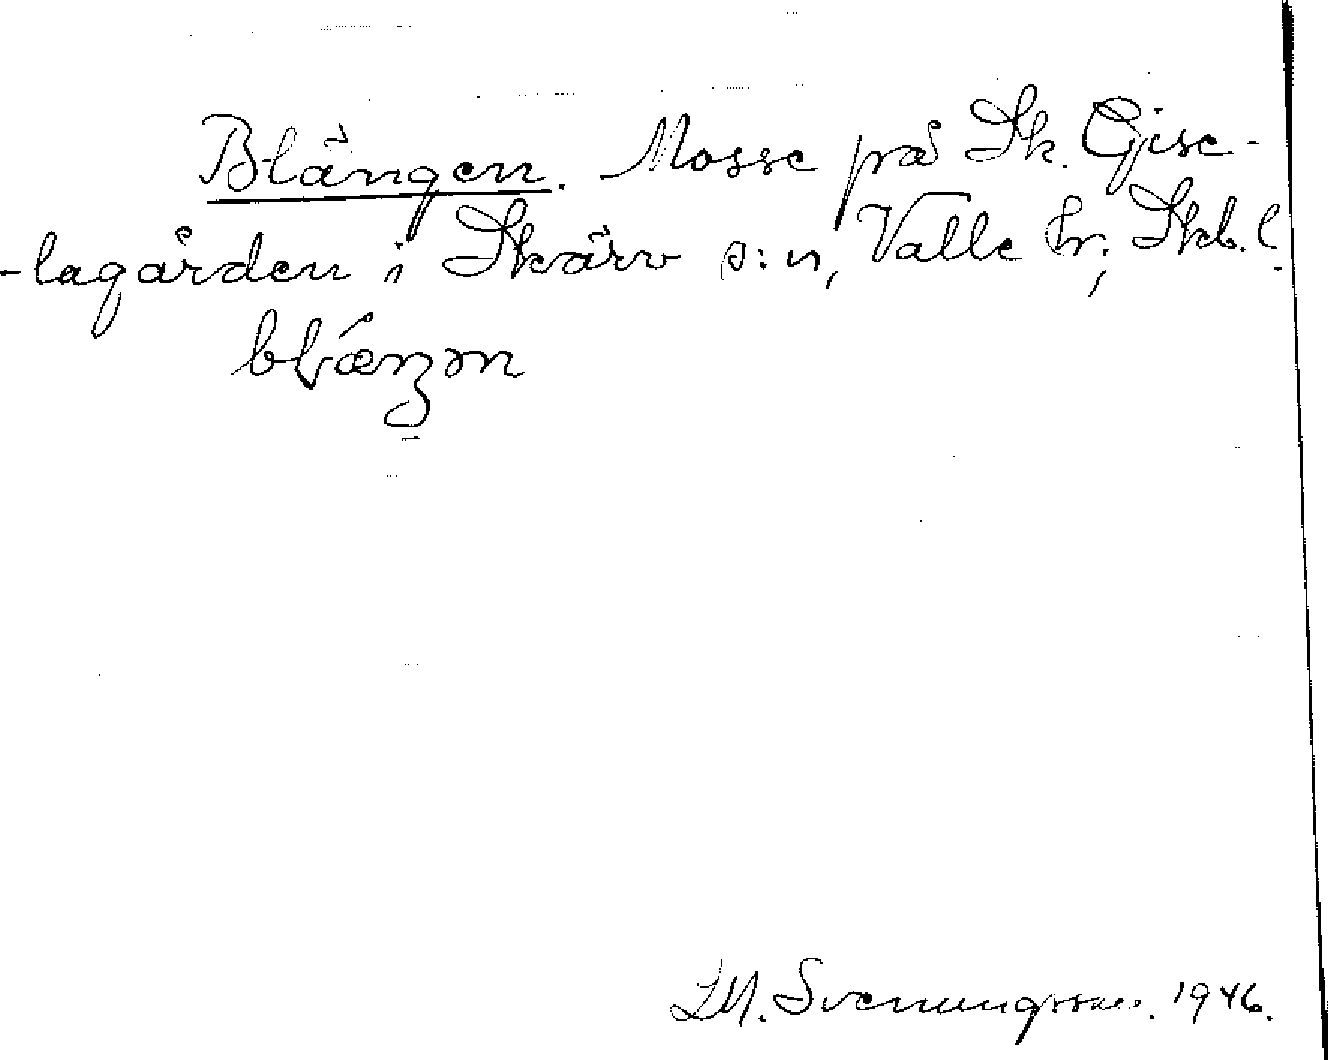 Blängen. Mosse på Sk. Gise-
-lagården i Skärv s:n, Valle hr; Skb. l.
blǽnꝫən
L.M. Svenungsson. 1946.